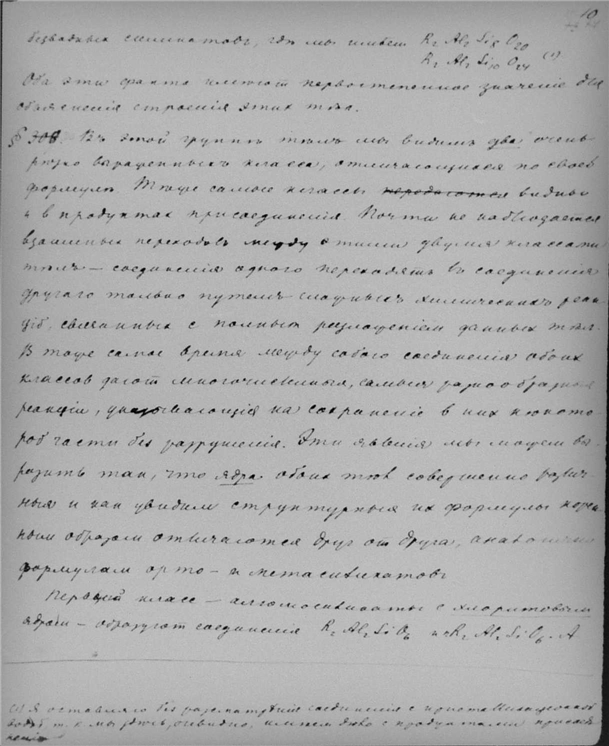 10
безводных силикатов, где мы имеем R₂ Al₂ Si₈ O₂₀
R₂ Al₂ Si₁₀ O₂₄ (1)
Оба эти факта имеют первостепенное значенiе для
объясненiя строенiя этих тел.
§ 308. Въ этой группѣ тѣлъ мы видимъ два очень
резко выраженныхъ класса, отличающихся по своей
формулѣ. Тѣже самые классы передаются видны
и в продуктах присоединенiя. Почти не наблюдается
взаимных переходовъ между этими двумя классами
тѣлъ — соединенiя одного переходятъ въ соединенiя
другаго только путемъ сложныхъ химическихъ реак-
цiй, связанных с полным разложенiем данных тѣл.
В тоже самое время между собою соединенiя обоих
классов дают многочисленныя, самыя разнообразныя
реакцiи, указывающiя на сохраненiе в них нѣкото
рой части без разрушенiя. Эти явленiя мы можем вы-
разить так, что ядра обоих тѣл совершенно различ-
ныя и как увидим структурныя их формулы корен-
ным образом отличаются друг от друга, аналогично
формулам орто- и метасиликатовъ
Первый класс — алюмосиликаты с хлоритовым
ядром — образуют соединенiя R₂ Al₂ Si O₆ и R₂ Al₂ Si O₆ . A
(1) Я оставляю без разсмотрѣнiя соединенiя с
водой т. к. мы здесь, очевидно, имѣем дѣло с продуктами присое
ненiя